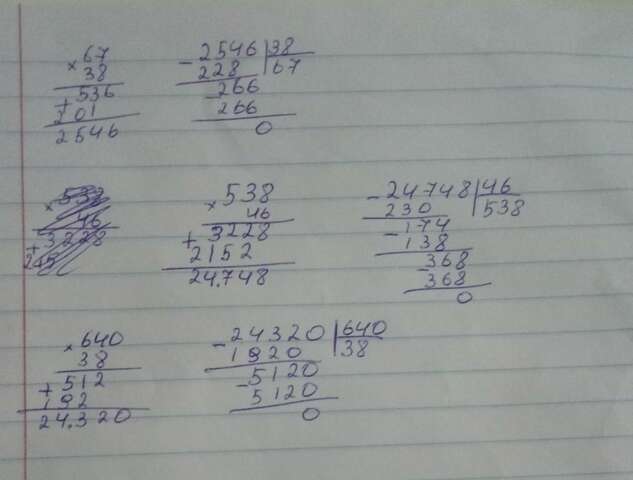 × 67
38
+ 536
201
2546
- 2546 | 38
228 | 67
- 266
266
0
× 538
46
+ 3228
245
× 538
46
+ 3228
2152
24.748
- 24748 | 46
230 | 538
- 174
138
- 368
368
0
× 640
38
+ 512
192
24.320
- 24320 | 640
1920 | 38
- 5120
5120
0